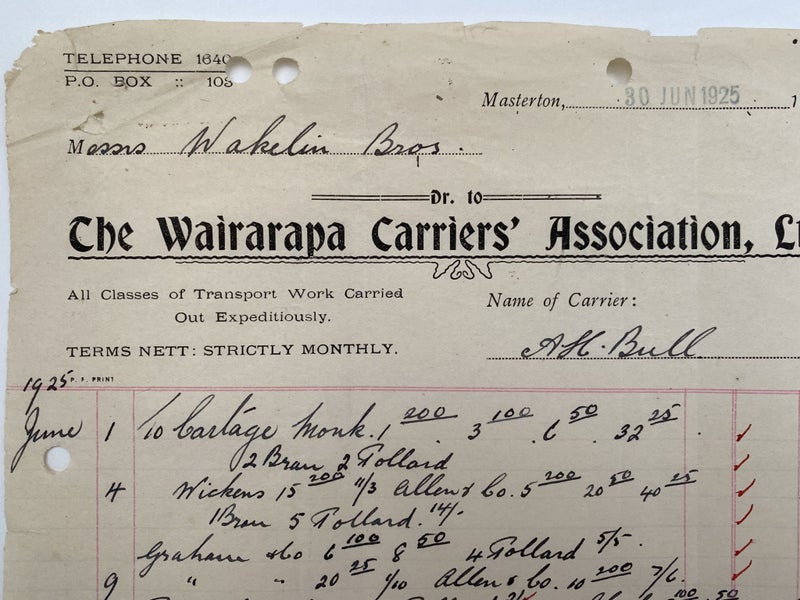 TELEPHONE 1640
P.O. BOX :: 108
Masterton, 30 JUN 1925 1
Messrs Wakelin Bros.
Dr. to
The Wairarapa Carriers' Association, Lt
All Classes of Transport Work Carried
Out Expeditiously.
Name of Carrier:
TERMS NETT: STRICTLY MONTHLY.
A H. Bull
1925 P. F. PRINT
June 1 To Cartage Monk. 1 200 . 3 100 . 6 50 . 32 25
2 Bran 2 Pollard
4 Wickens 15 200 11/3 Allen & Co. 5 200 20 50 40 25
1 Bran 5 Pollard. 14/-
Graham & Co 6 100 8 50 4 Pollard 5/5.
9 " " 20 25 1/10 Allen & Co. 10 200 7/6.
100 50